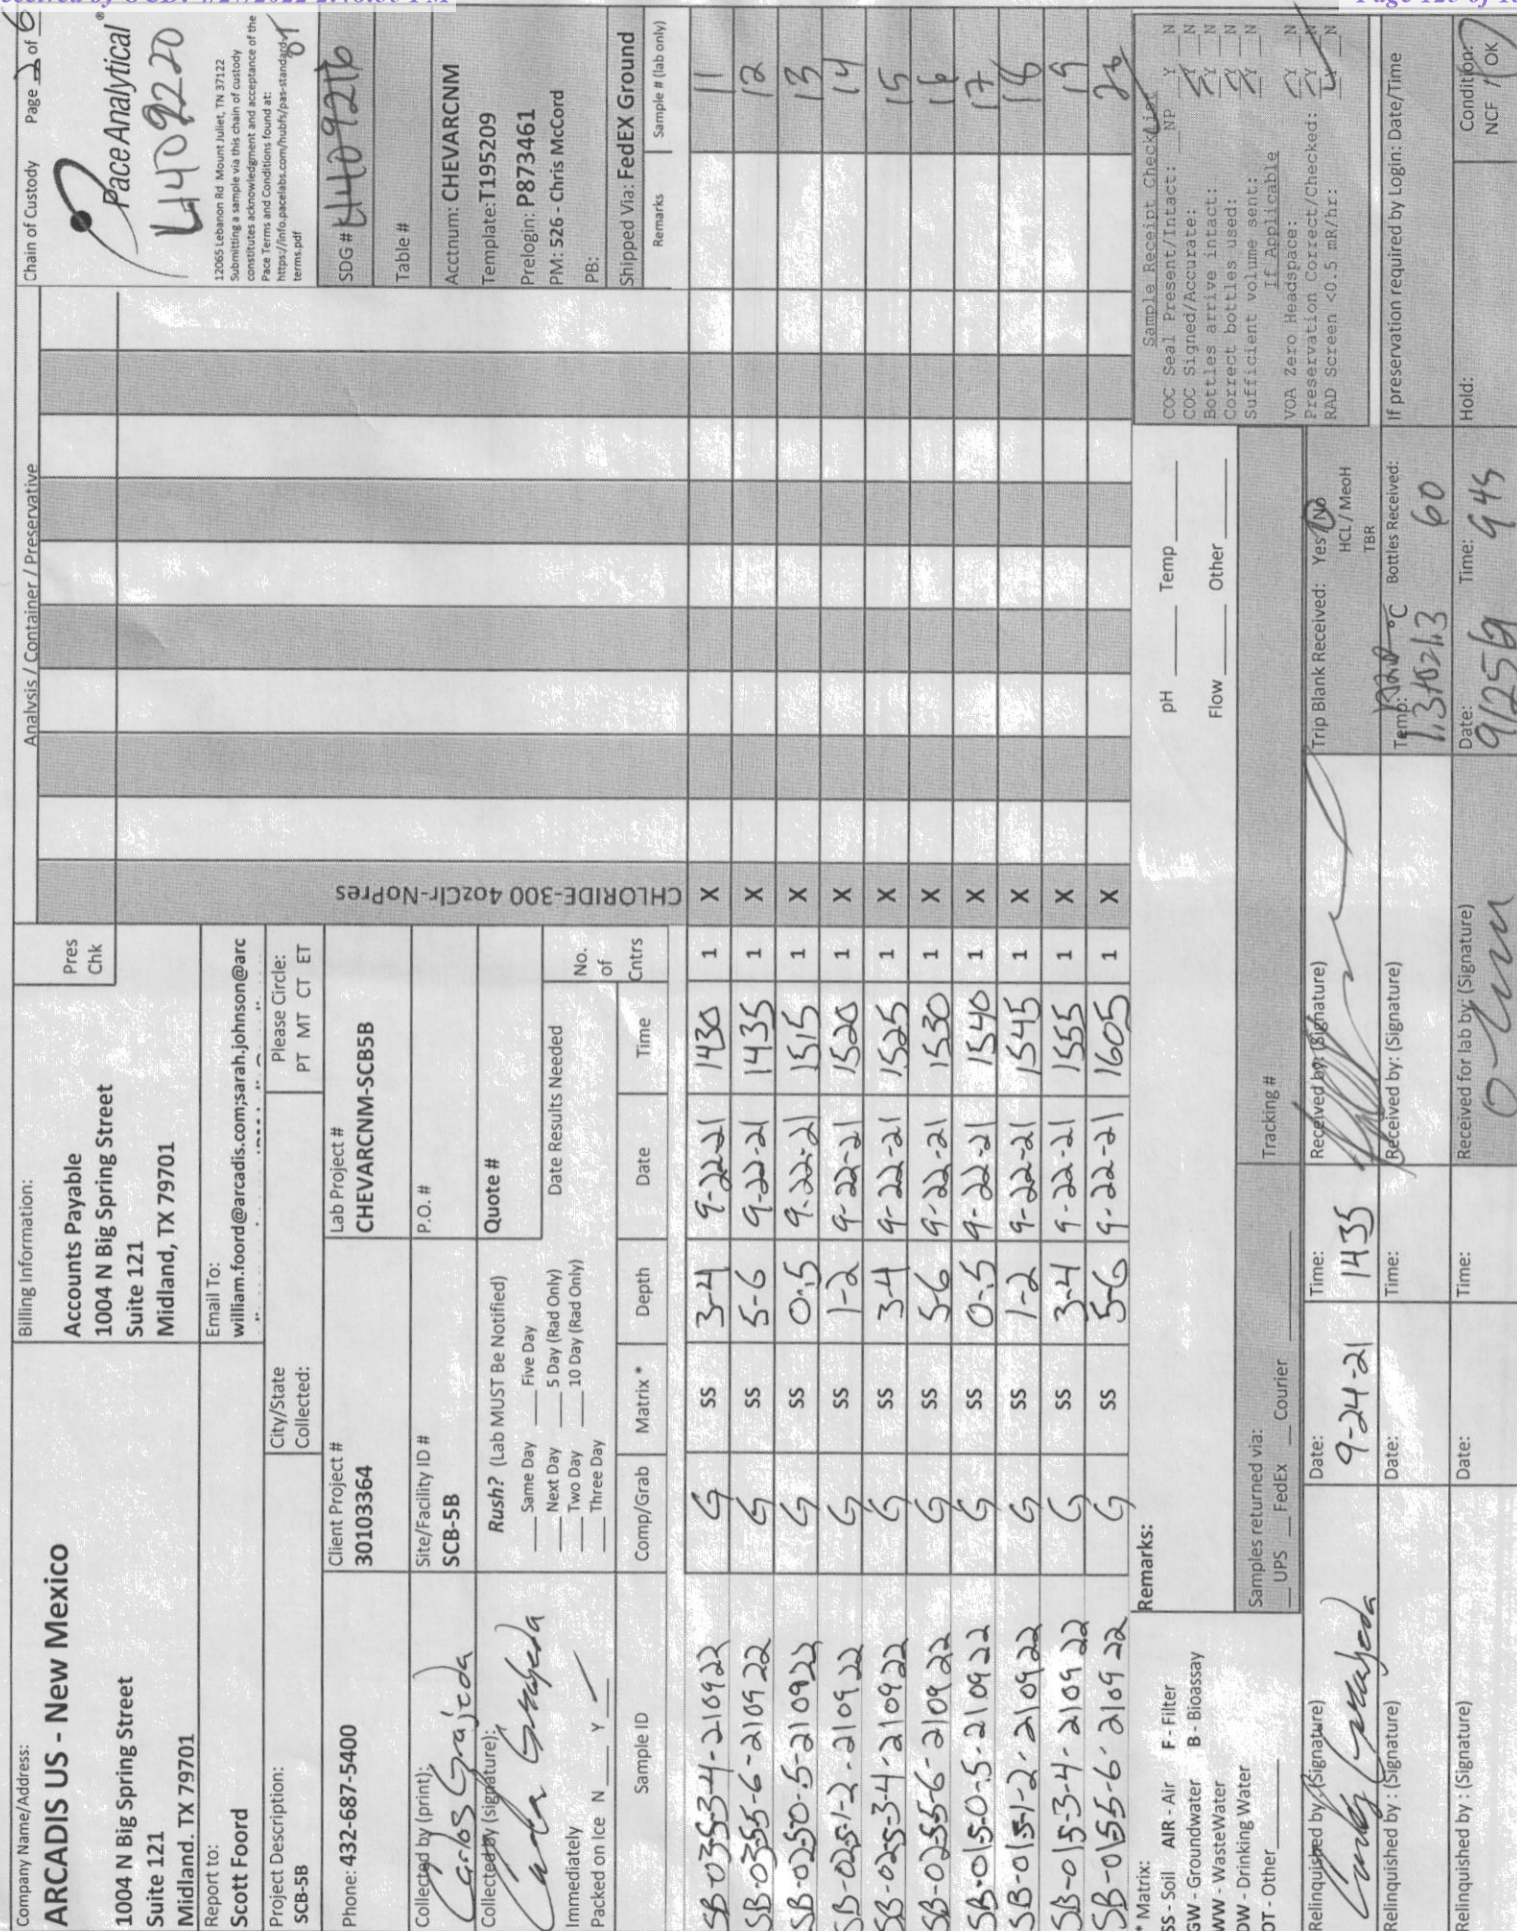 Company Name/Address:
ARCADIS US - New Mexico
1004 N Big Spring Street
Suite 121
Midland. TX 79701
Billing Information:
Accounts Payable
1004 N Big Spring Street
Suite 121
Midland, TX 79701
Pres
Chk
Analysis / Container / Preservative
Chain of Custody Page 2 of 6
Pace Analytical ®
L1409220
12065 Lebanon Rd Mount Juliet, TN 37122
Submitting a sample via this chain of custody
constitutes acknowledgment and acceptance of the
Pace Terms and Conditions found at:
https://info.pacelabs.com/hubfs/pas-standard-
terms.pdf
Report to:
Scott Foord
Email To:
william.foord@arcadis.com;sarah.johnson@arc
Project Description:
SCB-5B
City/State
Collected:
Please Circle:
PT MT CT ET
Phone: 432-687-5400
Client Project #
30103364
Lab Project #
CHEVARCNM-SCB5B
Collected by (print):
Carlos Grajeda
Site/Facility ID #
SCB-5B
P.O. #
Collected by (signature):
Rush? (Lab MUST Be Notified)
___ Same Day ___ Five Day
___ Next Day ___ 5 Day (Rad Only)
___ Two Day ___ 10 Day (Rad Only)
___ Three Day
Quote #
Date Results Needed
Immediately
Packed on Ice N ___ Y ___
No.
of
Cntrs
CHLORIDE-300 4ozClr-NoPres
SDG #
Table #
Acctnum: CHEVARCNM
Template: T195209
Prelogin: P873461
PM: 526 - Chris McCord
PB:
Shipped Via: FedEX Ground
Sample ID Comp/Grab Matrix * Depth Date Time Remarks Sample # (lab only)
SB-035-3-4-210922 G SS 3-4 9-22-21 1430 1 X 11
SB-035-5-6-210922 G SS 5-6 9-22-21 1435 1 X 12
SB-025-0-.5-210922 G SS 0-.5 9-22-21 1515 1 X 13
SB-025-1-2-210922 G SS 1-2 9-22-21 1520 1 X 14
SB-025-3-4-210922 G SS 3-4 9-22-21 1525 1 X 15
SB-025-5-6-210922 G SS 5-6 9-22-21 1530 1 X 16
SB-015-0-.5-210922 G SS 0-.5 9-22-21 1540 1 X 17
SB-015-1-2-210922 G SS 1-2 9-22-21 1545 1 X 18
SB-015-3-4-210922 G SS 3-4 9-22-21 1555 1 X 19
SB-015-5-6-210922 G SS 5-6 9-22-21 1605 1 X 20
* Matrix:
SS - Soil AIR - Air F - Filter
GW - Groundwater B - Bioassay
WW - WasteWater
DW - Drinking Water
OT - Other
Remarks:
pH ___ Temp ___
Flow ___ Other ___
Sample Receipt Checklist
COC Seal Present/Intact: NP Y N
COC Signed/Accurate: Y N
Bottles arrive intact: Y N
Correct bottles used: Y N
Sufficient volume sent: Y N
If Applicable
VOA Zero Headspace: Y N
Preservation Correct/Checked: Y N
RAD Screen <0.5 mR/hr: Y N
Samples returned via:
___ UPS ___ FedEx ___ Courier
Tracking #
Relinquished by : (Signature) Date: 9-24-21 Time: 1435 Received by: (Signature)
Trip Blank Received: Yes / No
HCL / MeoH
TBR
Relinquished by : (Signature) Date: Time: Received by: (Signature)
Temp: °C Bottles Received: 60
If preservation required by Login: Date/Time
Relinquished by : (Signature) Date: Time: Received for lab by: (Signature)
Date: 9/25/21 Time: 945 Hold: Condition:
NCF / OK